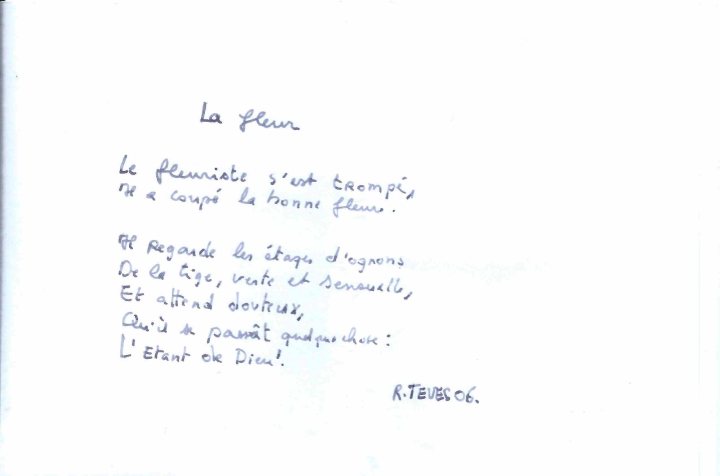 La fleur
Le fleuriste s'est trompé,
Il a coupé la bonne fleur.
Il regarde les étages d'ognons
De la tige, verte et sensuelle,
Et attend douteux,
Qu'il se passât quelque chose :
L'Etant de Dieu!.
R.TEVES 06.